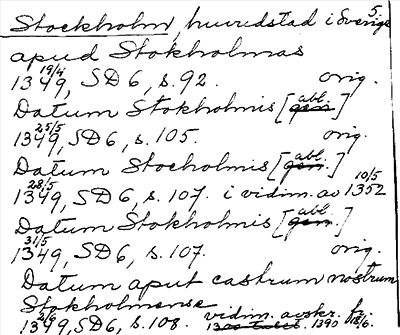 Stockholm, huvudstad i Sverige 5.
apud Stokholmas
1349 19/4, SD 6, s. 92. orig.
Datum Stokholmis [gen. abl.]
1349 25/5, SD 6, s. 105. orig.
Datum Stocholmis [gen. abl.]
1349 28/5, SD 6, s. 107. i vidim. av 1352 10/5
Datum Stokholmis [gen. abl.]
1349 31/5, SD 6, s. 107. orig.
Datum aput castrum nostrum
Stokholmense
1349 2/6, SD 6, s. 108. vidim. avskr. fr. 1390 18/6.